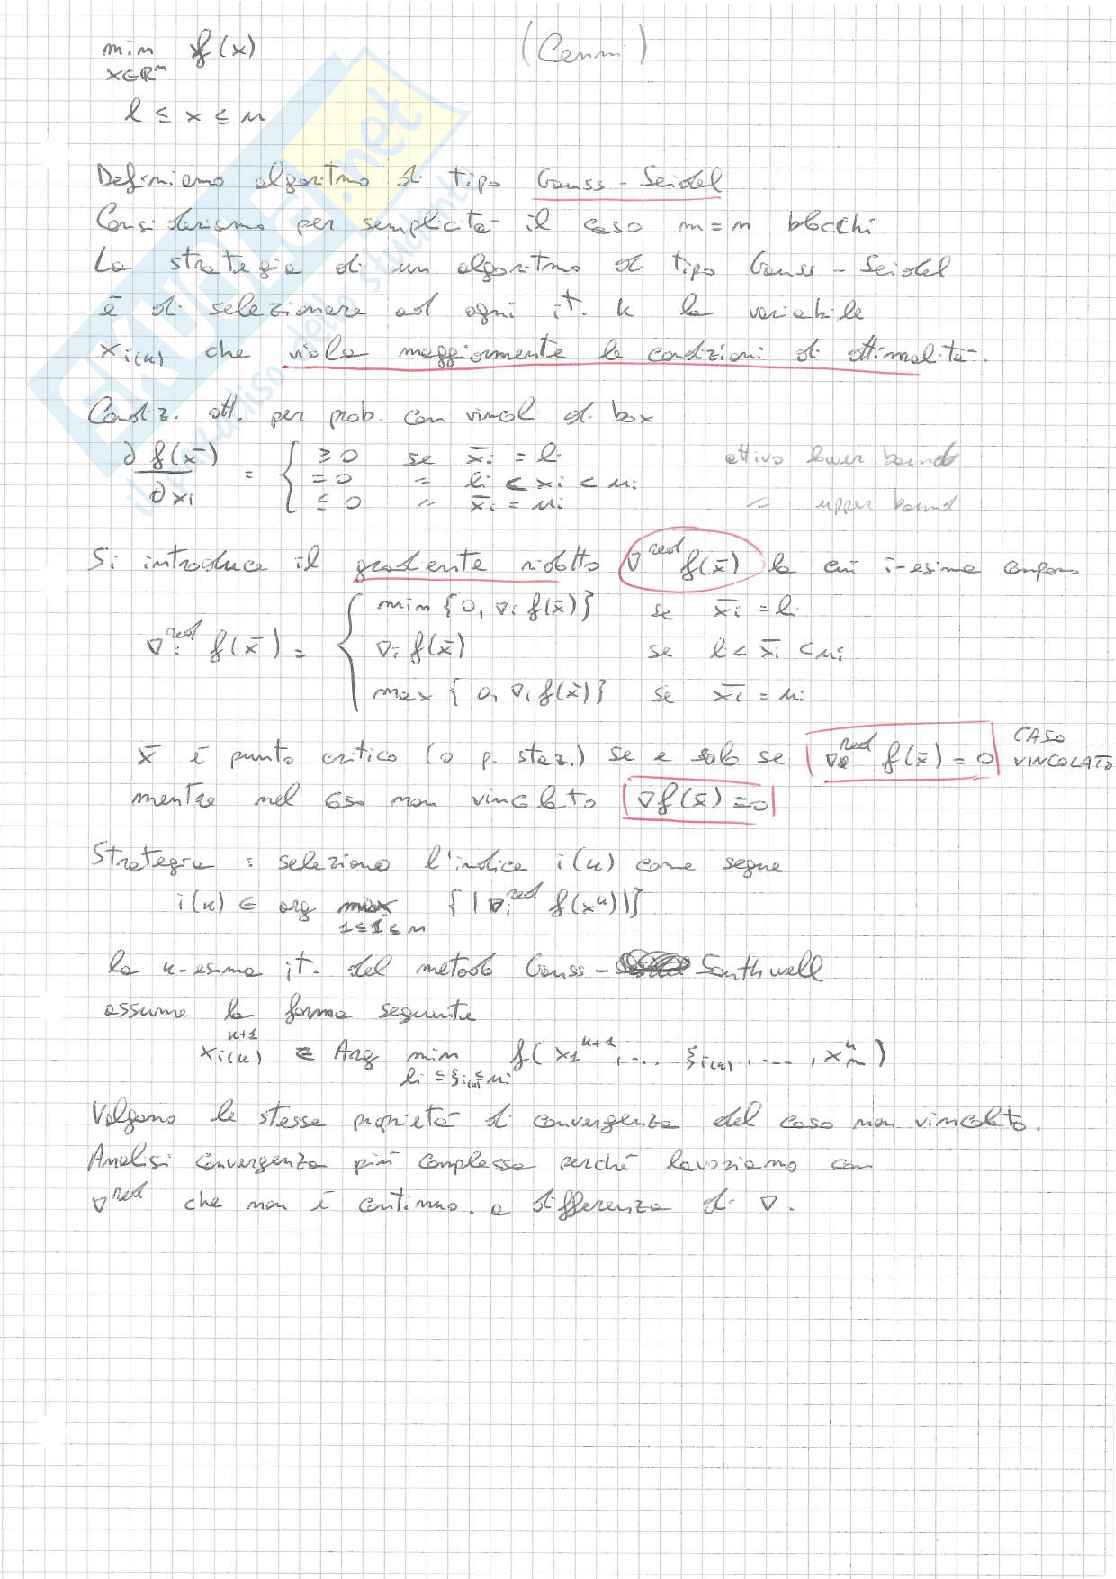 min f(x) (Cenni)
x∈ℝⁿ
l ≤ x ≤ u
Definiamo algoritmo di tipo Gauss-Seidel
Consideriamo per semplicità il caso m=n blocchi
La strategia di un algoritmo di tipo Gauss-Seidel
è di selezionare ad ogni it. k la variabile
x_i(k) che viola maggiormente le condizioni di ottimalità.
Condiz. ott. per prob. con vincoli di box
∂f(x̄)/∂xi = { ≥ 0 se x̄i = li attivo lower bound
= 0 " li < xi < ui
≤ 0 " x̄i = ui " upper bound
Si introduce il gradiente ridotto ∇^red f(x̄) la cui i-esima compon
∇i^red f(x̄) = { min {0, ∇i f(x̄)} se x̄i = li
∇i f(x̄) se li < x̄i < ui
max {0, ∇i f(x̄)} se x̄i = ui
x̄ è punto critico (o p. staz.) se e solo se ∇^red f(x̄) = 0 CASO VINCOLATO
mentre nel caso non vincolato ∇f(x̄) = 0
Strategia : seleziono l'indice i(k) come segue
i(k) ∈ arg max {|∇i^red f(x^k)|}
1≤i≤n
la k-esima it. del metodo Gauss- Southwell
assume la forma seguente
x_i(k)^k+1 ∈ Arg min f(x1^k+1, .... ξ_i(k), ...., xn^k)
li ≤ ξ_i(k) ≤ ui
Valgono le stesse proprietà di convergenza del caso non vincolato.
Analisi convergenza più complessa perché lavoriamo con
∇^red che non è continuo. a differenza di ∇.
skuola.net